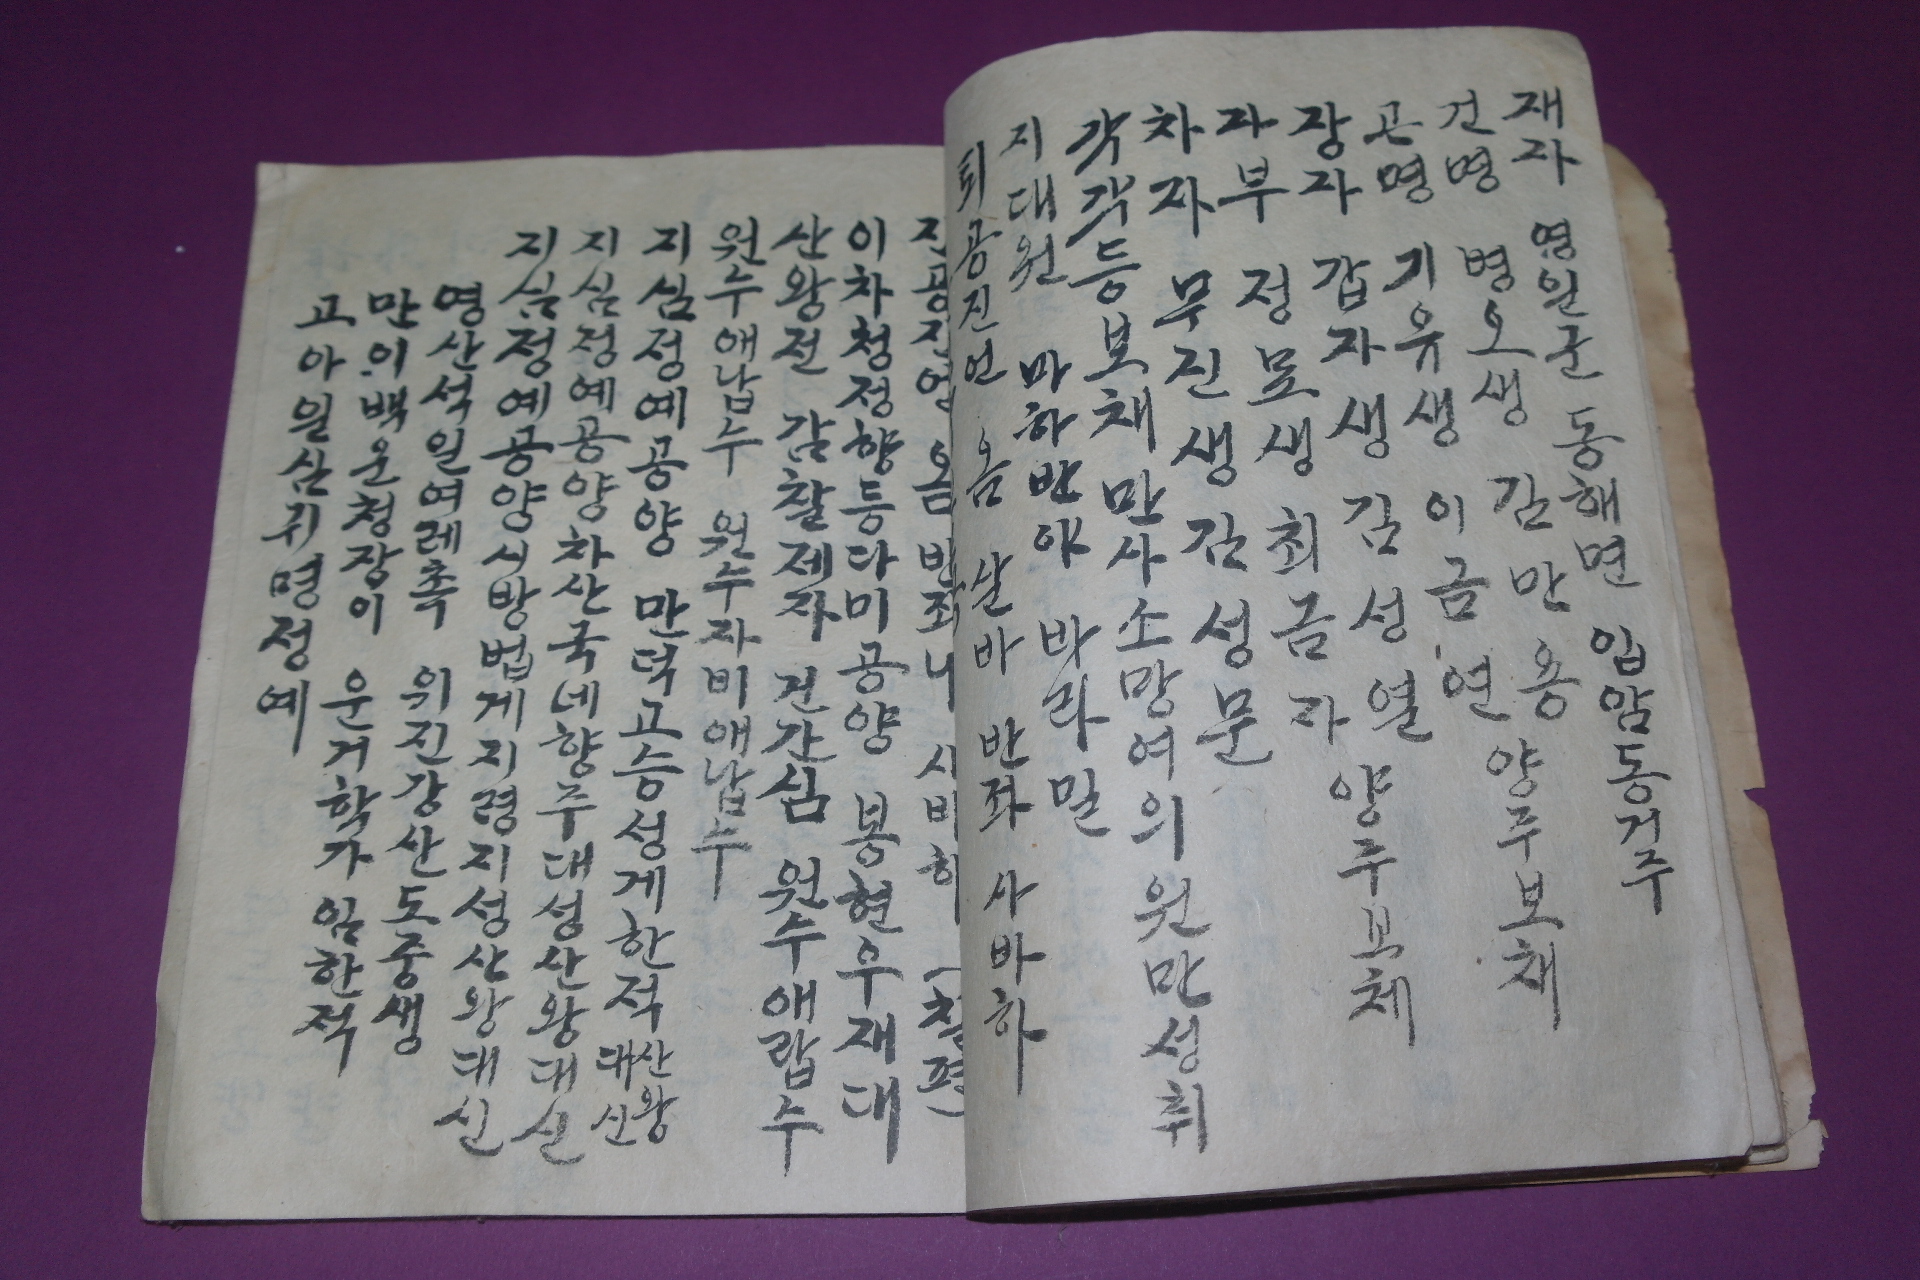 재자 영일군 동해면 임암동거주
건명 병오생 김만용 양주보채
곤명 기유생 이금연
장자 갑자생 김성열 양주보체
자부 정묘생 최금자
차자 무진생 김성문
각각등보채 만사소망여의원만성취
지대원 마하반야 바라밀
퇴공진언 옴 살바 반좌 사바하
진공진언 옴 반좌 사바하 (칠편)
이차청정향등다미공양 봉현우재대
산왕전 감찰제자 건간심 원수애랍수
원수애납수 원수자비애납수
지심정예공양 만덕고승성게한적 산왕대신
지심정예공양차산국네항주대성산왕대신
지심정예공양시방법게지령지성산왕대신
영산석일여레촉 위진강산도중생
만이백운청장이 운거학가임한적
고아일심귀명정예